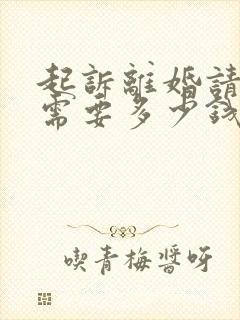 起訴離婚請
需要多少錢
喫青梅醬呀